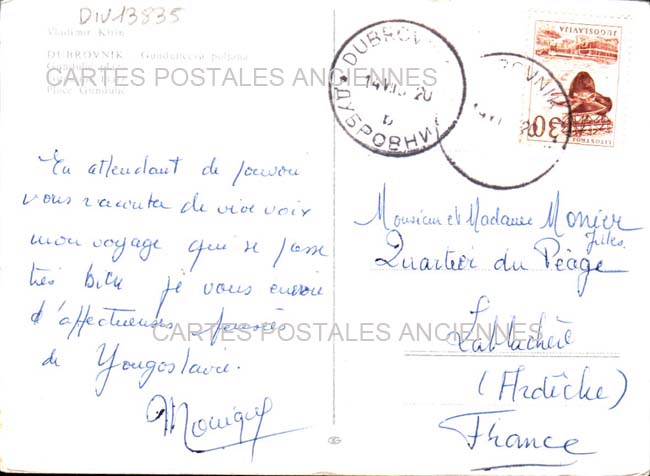 DIV13835
Vladimir Kirin
DUBROVNIK Gundulićeva poljana
Place Gundulić
CARTES POSTALES ANCIENNES
DUBROV
ДУБРОВНИ
JUGOSLAVIJA
LITOSTROJ
30
En attendant de pouvoir
vous raconter de vive voix
mon voyage qui se passe
très bien je vous envoie
d'affectueuses pensées
de Yougoslavie.
Monique
Monsieur et Madame Monier
Jules.
Quartier du Péage
Lablachère
(Ardèche)
France
CARTES POSTALES ANCIENNES